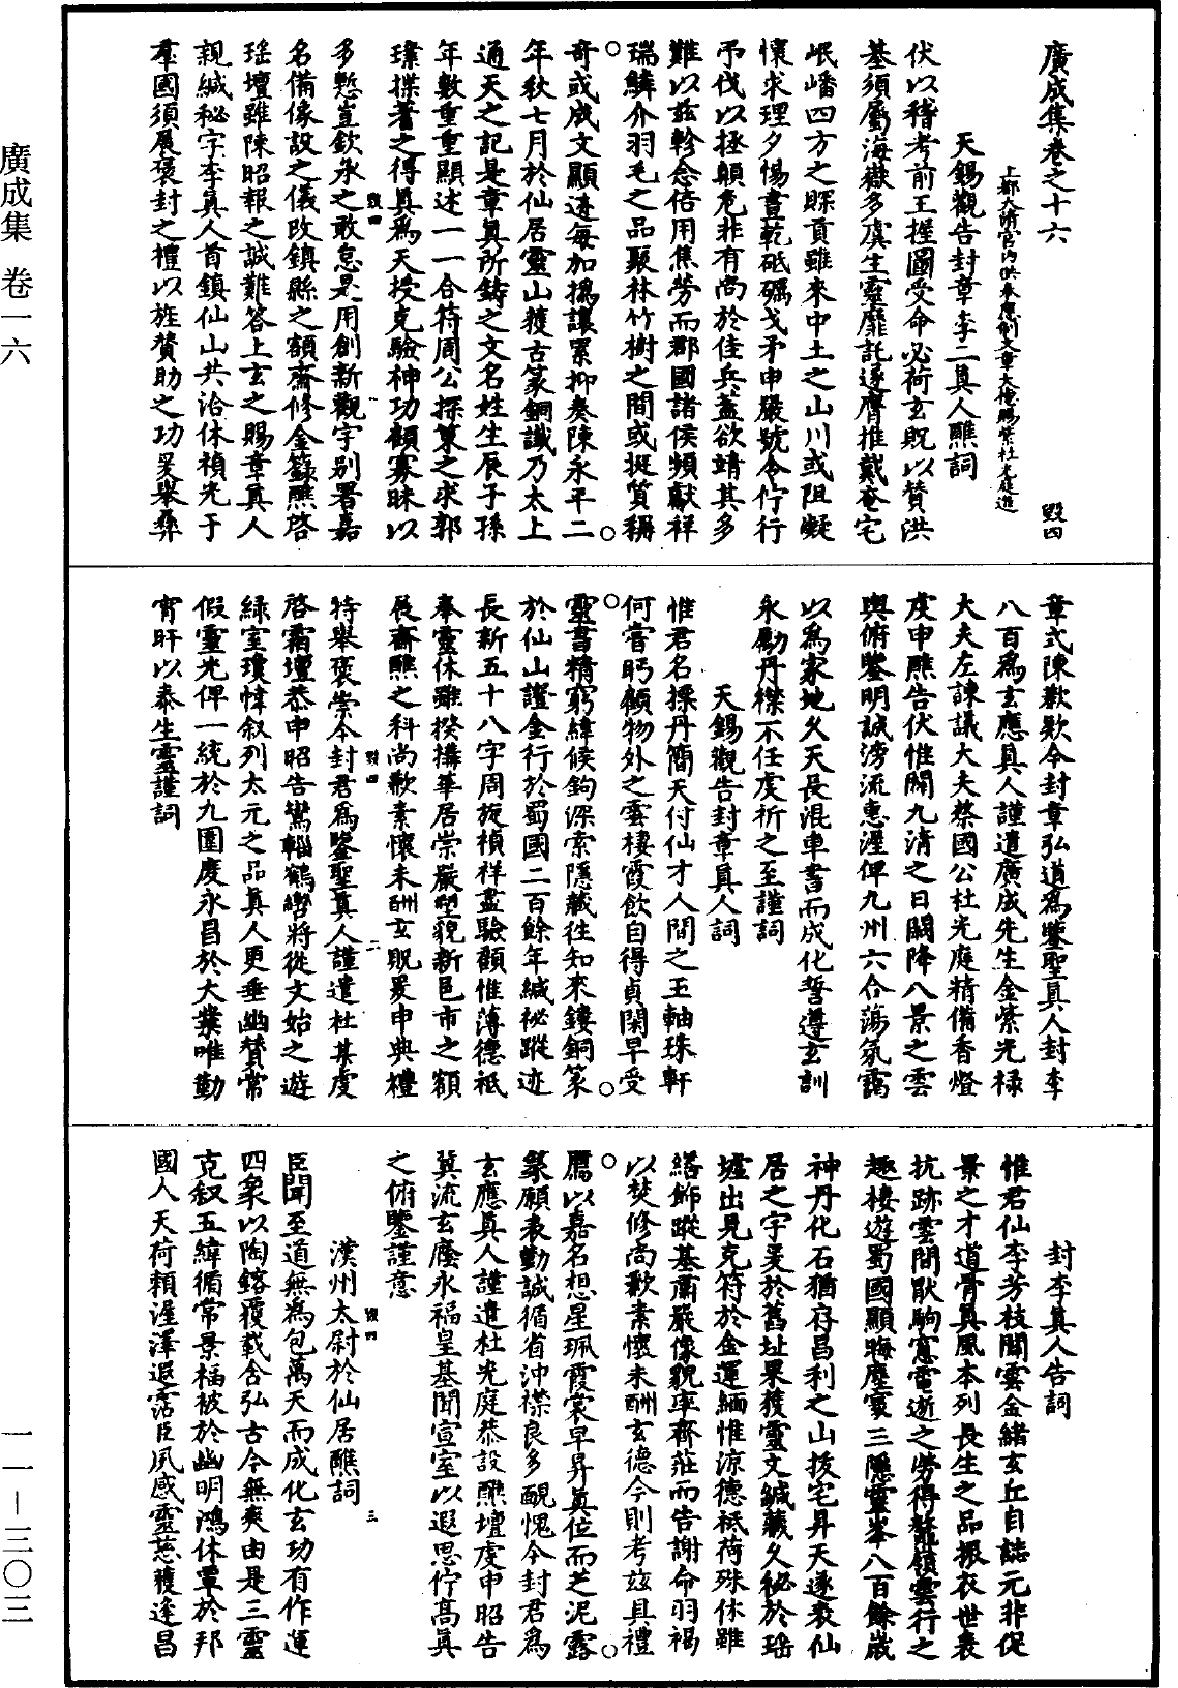 廣成集 卷一六
一一－三〇三
廣成集卷之十六
毀四
上都太清宮內供奉應制文章大德賜紫杜光庭進
天錫觀告封章李二真人醮詞
伏以稽考前王握圖受命必荷玄貺以贊洪
基須屬海嶽多虞生靈靡託遂膺推戴奄宅
岷嶓四方之賝貢雖來中土之山川或阻礙
懷求理夕惕晝乾砥礪戈矛申嚴號令佇行
弔伐以拯顛危非有尚於佳兵蓋欲靖其多
難以玆軫念倍用焦勞而郡國諸侯頻獻祥
瑞鱗介羽毛之品聚林竹樹之間或挺質稱
奇或成文顯迹每加撝讓累抑奏陳永平二
年秋七月於仙居靈山獲古篆銅讖乃太上
通天之記是章真所鑄之文名姓生辰子孫
年數重重顯述一一合符周公探策之求郭
璞揲蓍之得真為天授克驗神功顧寡昧以
毀四
一
多慙豈欽承之敢怠是用創新觀宇別署嘉
名備像設之儀改鎮縣之額齋修金籙醮啓
瑤壇雖陳昭報之誠難答上玄之賜章真人
親緘秘字李真人首鎮仙山共洽休禎光于
羣國須展褒封之禮以旌贊助之功爰舉彝
章式陳歎歎今封章弘道為鑒聖真人封李
八百為玄應真人謹遣廣成先生金紫光祿
大夫左諫議大夫蔡國公杜光庭精備香燈
虔申醮告伏惟開九清之日闕降八景之雲
輿俯鑒明誠滂流惠渥俾九州六合蕩氛靄
以為家地久天長混車書而成化誓遵玄訓
永勵丹襟不任虔祈之至謹詞
天錫觀告封章真人詞
惟君名探丹簡天付仙才人間之玉軸珠軒
何嘗眄顧物外之雲棲霞飲自得貞閑早受
靈書精窮緯候鈎深索隱藏往知來鏤銅篆
於仙山證金行於蜀國二百餘年緘祕蹤迹
長新五十八字周旋禎祥盡驗顧惟薄德祗
奉靈休雖揆搆華居崇嚴塑貌新邑市之額
展齋醮之科尚歉素懷未酬玄貺爰申典禮
毀四
二
特舉褒崇今封君為鑒聖真人謹遣杜某虔
啓霜壇恭申昭告鸞輧鶴轡將從文始之遊
綠室瓊幃叙列太元之品真人更垂幽贊常
假靈光俾一統於九圍慶永昌於大業唯勤
宵旰以泰生靈謹詞
封李真人告詞
惟君仙李芳枝閬雲金緒玄丘自誌元非促
景之才道骨真風本列長生之品振衣世表
抗跡雲間猒駒窻電逝之勞得龍鎖雲行之
趣棲遊蜀國顯晦塵寰三隱靈峯八百餘歲
神丹化石猶存昌利之山拔宅昇天遂表仙
居之宇爰於舊址果獲靈文緘藏久秘於瑤
墟出見克符於金運緬惟涼德祗荷殊休雖
繕飾蹤基肅嚴像貌率齋莊而告謝命羽褐
以焚修尚歉素懷未酬玄德今則考玆具禮
薦以嘉名想星珮霞裳早昇真位而芝泥露
篆願表勤誠循省沖襟良多醜愧今封君為
玄應真人謹遣杜光庭恭設醮壇虔申昭告
冀流玄廕永福皇基開宣室以遐思佇高真
之俯鑒謹意
毀四
三
漢州太尉於仙居醮詞
臣聞至道無為包萬天而成化玄功有作運
四象以陶鎔覆載含弘古今無爽由是三靈
克叙五緯循常景福被於幽明鴻休覃於邦
國人天荷賴渥澤遐霑臣夙感靈慈獲逢昌